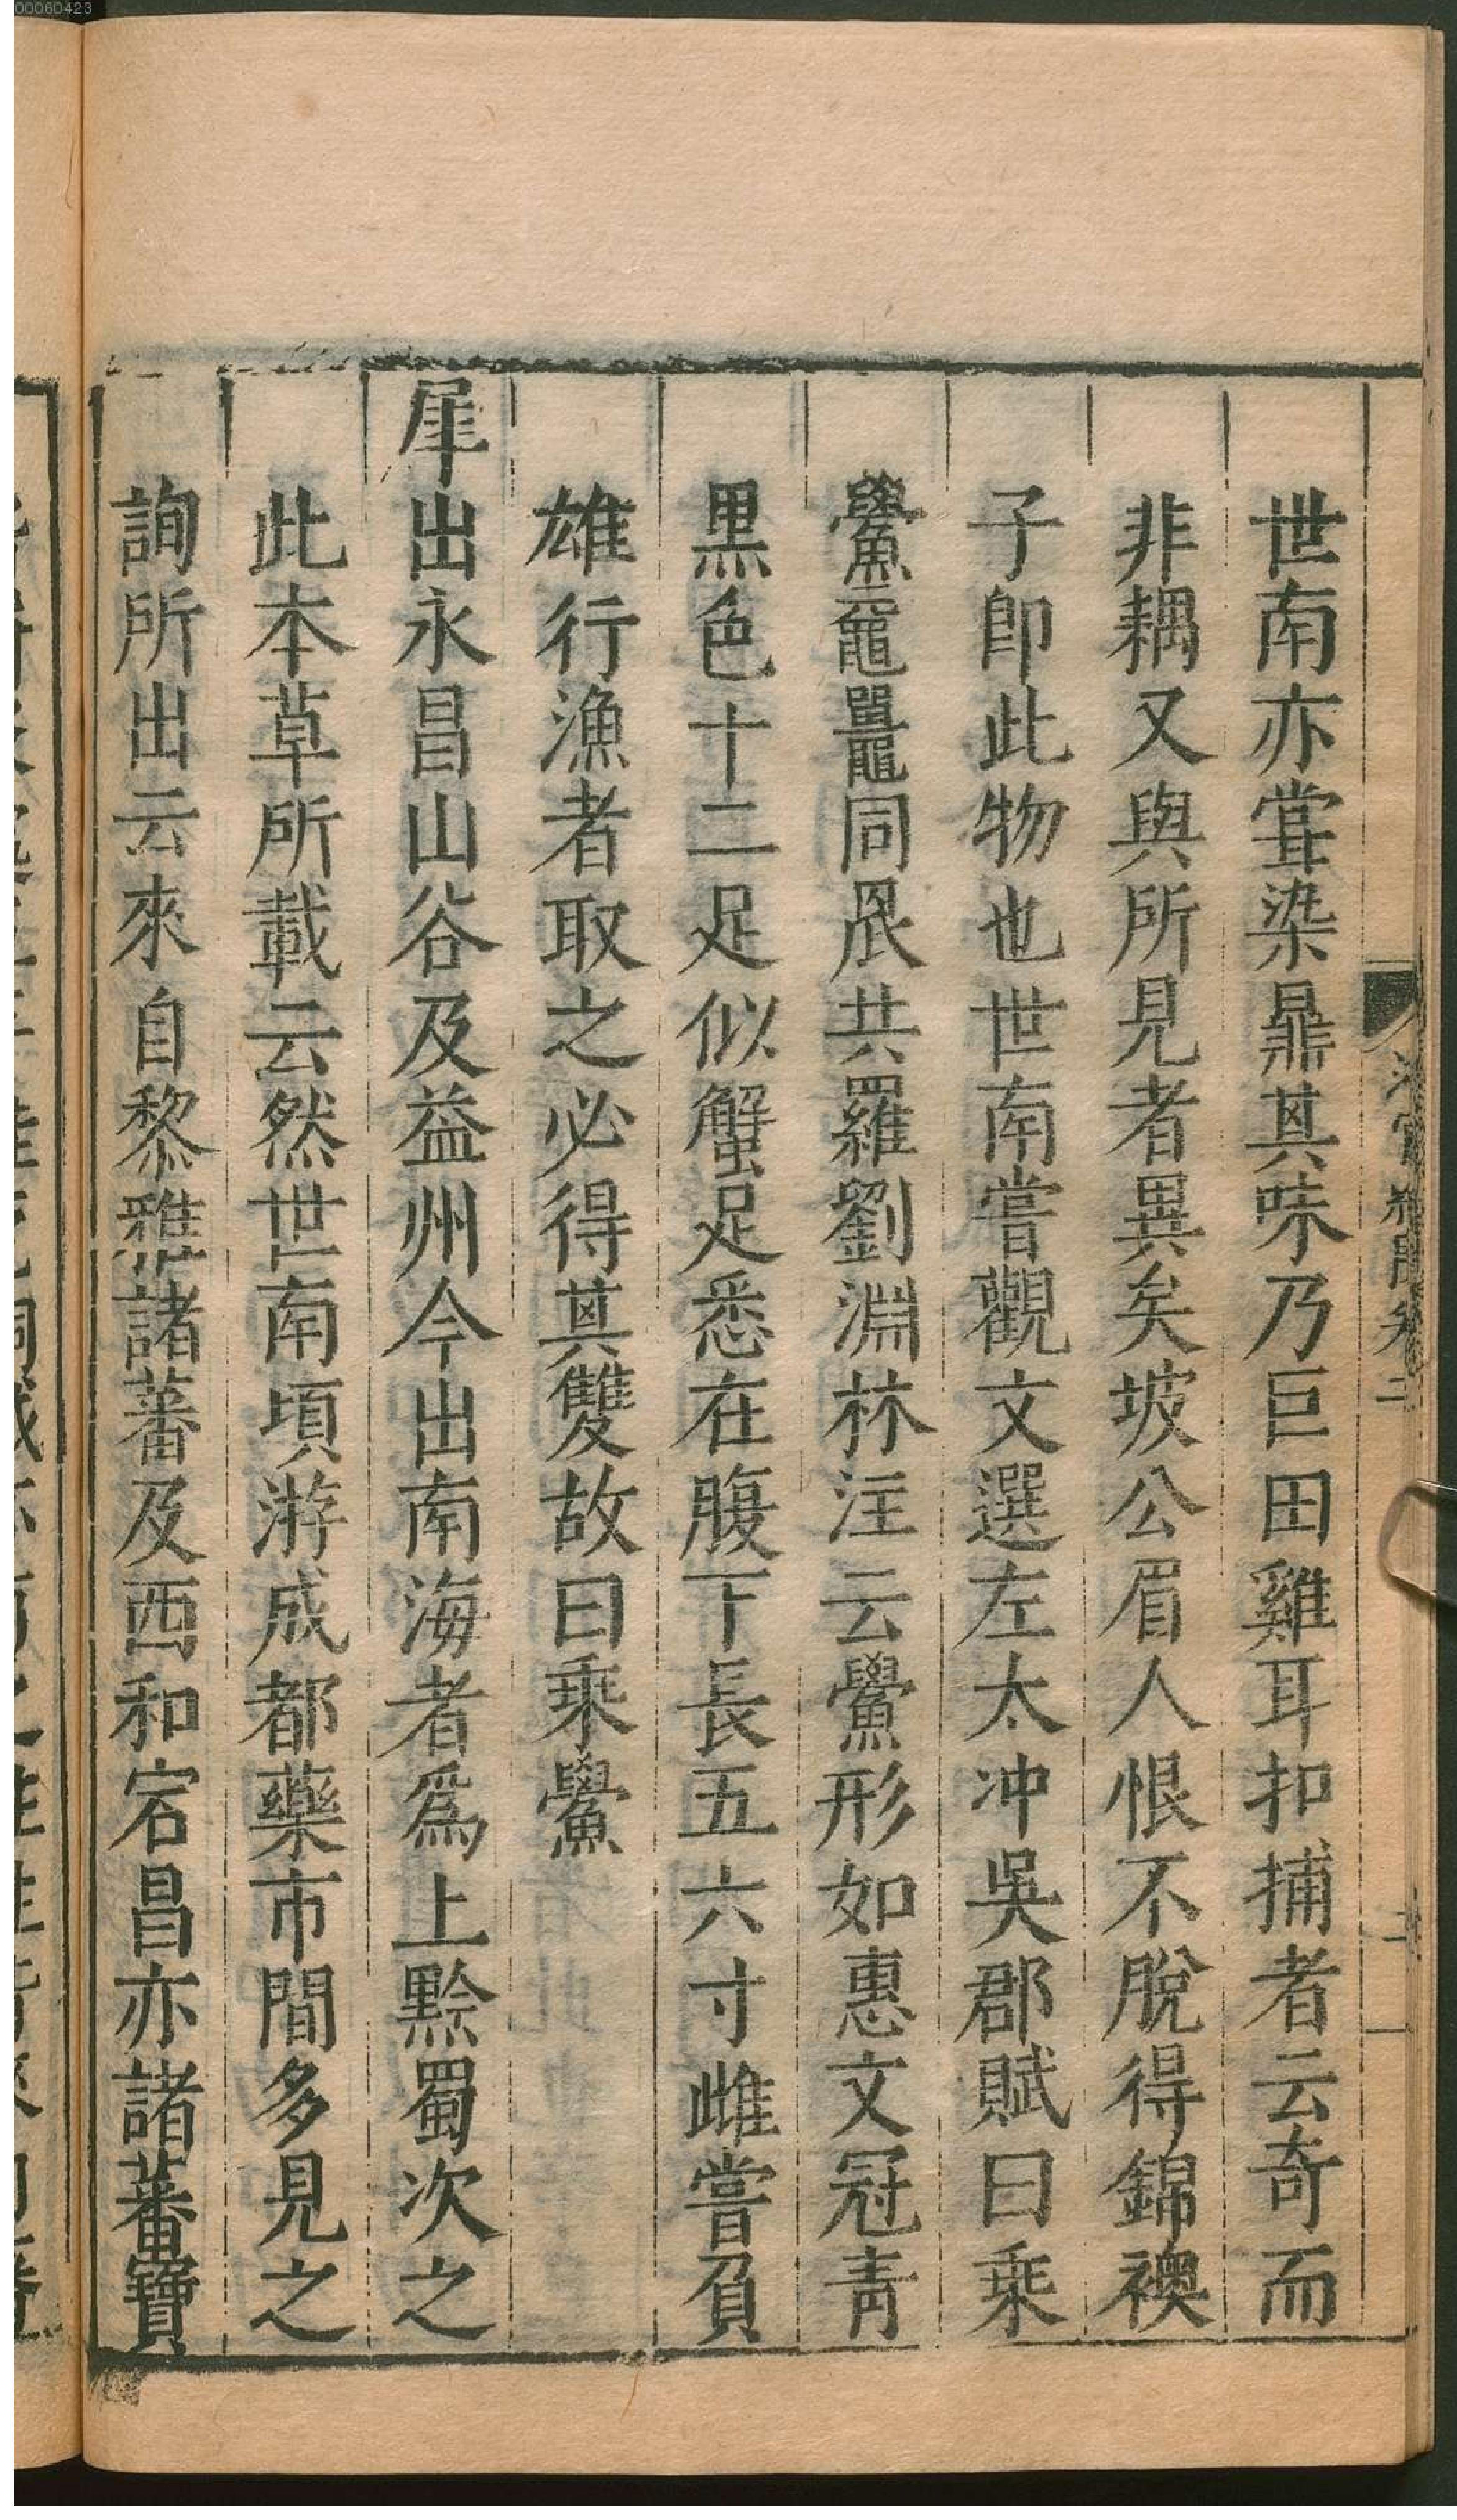 世南亦嘗染鼎其味乃巨田雞耳扣捕者云奇而
非耦又與所見者異矣坡公眉人恨不脫得錦襖
子卽此物也世南嘗觀文選左太冲吳郡賦曰乘
鱟黿鼉同罛共羅劉淵林注云鱟形如惠文冠靑
黑色十二足似蟹足悉在腹下長五六寸雌嘗負
雄行漁者取之必得其雙故曰乘鱟
犀出永昌山谷及益州今出南海者爲上黔蜀次之
此本草所載云然世南頃游成都藥市間多見之
詢所出云來自黎雅諸蕃及西和宕昌亦諸蕃寶
游宦紀聞卷二
二
00060423